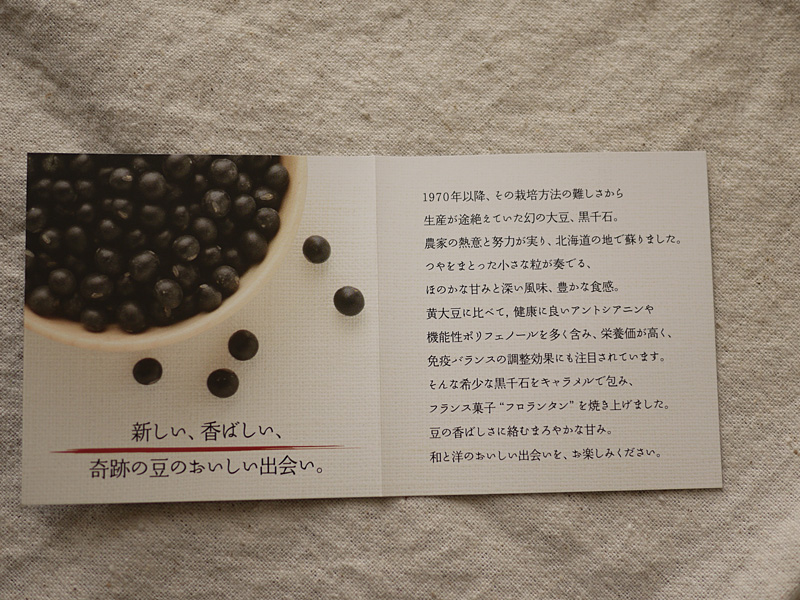 新しい、香ばしい、
奇跡の豆のおいしい出会い。
1970年以降、その栽培方法の難しさから
生産が途絶えていた幻の大豆、黒千石。
農家の熱意と努力が実り、北海道の地で蘇りました。
つやをまとった小さな粒が奏でる、
ほのかな甘みと深い風味、豊かな食感。
黄大豆に比べて，健康に良いアントシアニンや
機能性ポリフェノールを多く含み、栄養価が高く、
免疫バランスの調整効果にも注目されています。
そんな希少な黒千石をキャラメルで包み、
フランス菓子“フロランタン”を焼き上げました。
豆の香ばしさに絡むまろやかな甘み。
和と洋のおいしい出会いを、お楽しみください。